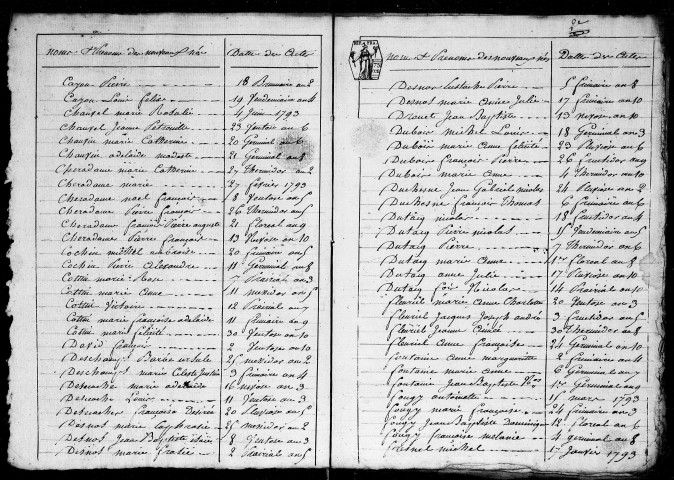 Noms et Prenoms des nouveaux nés Date des Actes
Cazou Pierre 18 Brumaire an 2
Cazou Louis Felix 19 Vendemiaire an 4
Chauvel marie Rosalie 4 Juin 1793
Chauvel Jeanne Petronille 23 Ventose an 6
Chauvin marie Catherine 20 Germinal an 6
Chauvin adelaide modeste 21 Germinal an 8
Cheradame marie Catherine 27 Thermidor an 2
Cheradame marie 27 fevrier 1793
Cheradame noel françois 8 Ventose an 5
Cheradame Pierre françois 26 Thermidor an 5
Cheradame françois Pierre auguste 21 floreal an 9
Cheradame Pierre françois 13 Nivose an 10
Cochin michel ambroise 20 frimaire an 5
Cochin Pierre Alexandre 11 Germinal an 8
Cottin marie Rose 1er Prairial an 3
Cottin marie anne 11 messidor an 5
Cottin Victoire 12 Prairial an 7
Cottin marie françoise adelaide 11 frimaire an 9
Cottin marie felicité 30 Ventose an 10
David françois 2 Ventose an 10
Deschamps Barbe ursule 25 messidor an 2
Deschamps marie Celeste Justine 3 frimaire an 4
Descoches marie adelaide 16 nivose an 3
Descoches Louis 11 Ventose an 3
Descoches françoise Desirée 20 Pluviose an 5
Desnos marie Euphrasie 25 messidor an 2
Desnos Jean Baptiste isidore 8 Ventose an 3
Desnos marie 2 Prairial an 5
REP. FRA.
Noms et Prenoms des nouveaux nés Date des Actes
Desnos Eustache Pierre 5 frimaire an 8
Desnos marie anne Julie 17 frimaire an 10
Drouet Jean Baptiste 13 nivose an 10
Dubois michel Louis 18 Germinal an 3
Dubois marie anne felicité 23 Pluviose an 6
Dubois françois Pierre 26 fructidor an 9
Dubois marie anne 4 Thermidor an 10
Duchesne Jean Gabriel nicolas 24 Pluviose an 2
Duchesne françois Thomas 6 frimaire an 6
Dutacq nicolas 18 fructidor an 4
Dutacq Pierre nicolas 15 Vendemiaire an 5
Dutacq Pierre 7 Thermidor an 6
Dutacq marie anne 1er floreal an 8
Dutacq anne Julie 17 Pluviose an 10
Dutacq nicolas 14 Prairial an 10
fleuriel marie anne Charlotte 20 Ventose an 3
fleuriel Jacques Joseph andré 3 fructidor an 5
fleuriel Jeanne 30 Thermidor an 8
fleuriel anne françoise 24 Germinal an 10
fontaine anne marguerite 2 frimaire an 4
fontaine marie anne 6 Germinal an 7
fontaine Jean Baptiste 1er Germinal an 9
fougy antoinette 15 mars 1793
fougy marie françoise 24 Germinal an 4
fougy Jean Baptiste Dominique 12 floreal an 6
fougy françoise melanie 4 germinal an 8
fresnel michel 17 Janvier 1793